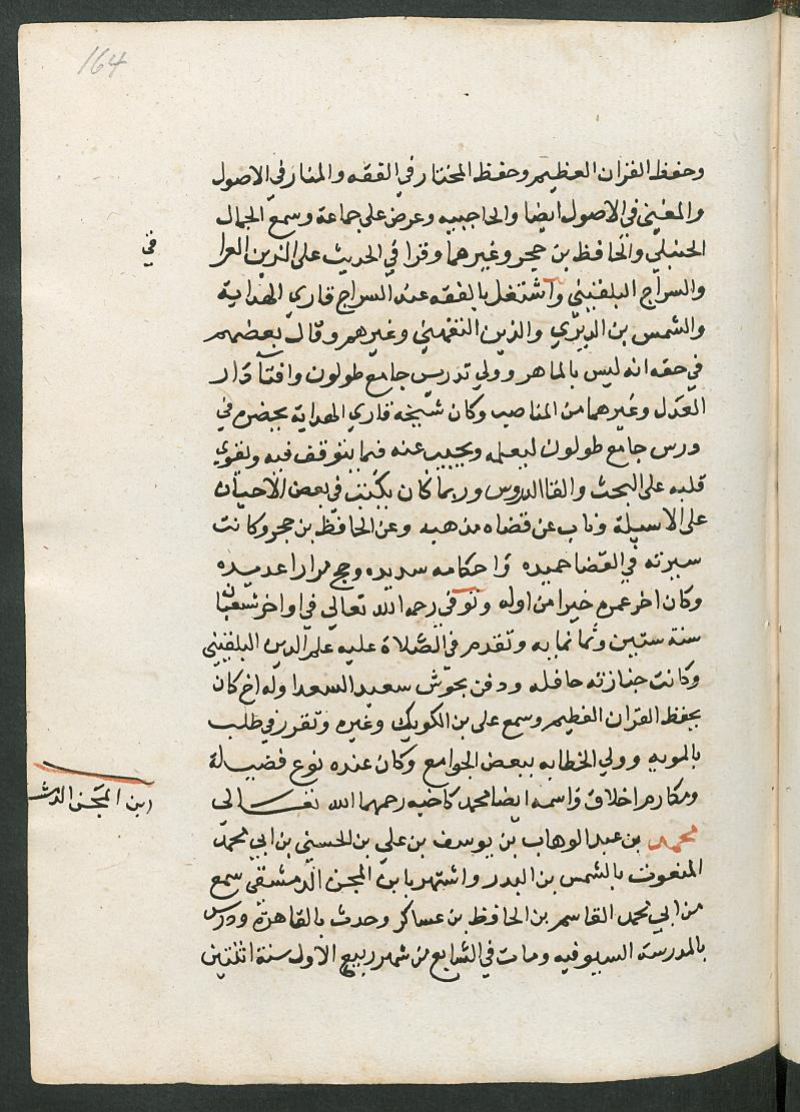 164
وحفظ القران العظيم وحفظ المختار في الفقه والمنار في الاصول
والمغني في الاصول ايضا والحاجبيه وعرض على جماعة وسمع الجمال
الحنبلي والحافظ بن حجر وغيرهما وقرا في الحديث على الزين العرا
في
والسراج البلقيني واشتغل بالفقه عند السراج قاري الهداية
والشمس بن الديري والزين التفهني وغيرهم وقال بعضهم
في حقه انه ليس بالماهر وولي تدريس جامع طولون وافتآ دار
العدل وغيرهما من المناصب وكان شيخه قاري الهداية يحضره في
درس جامع طولون ليعلمه ويجيب عنه فيما يتوقف فيه ويقوي
قلبه على البحث والقا الدروس وربما كان يكتب في بعض الاحيان
على الاسيلة وناب عن قضاه مذهبه وعن الحافظ بن حجر وكانت
سيرته في القضا حميده واحكامه سديده وحج مرارا عديده
وكان اخر عمره خيرا من اوله وتوفي رحمه الله تعالى في اواخر شعبان
سنة ستين وثمانمايه وتقدم في الصلاة عليه علم الدين البلقيني
وكانت جنازته حافله ودفن بحوش سعيد السعدا وله اخ كان
يحفظ القران العظيم وسمع على بن الكويك وغيره وتقرر في طلب
بالمويديه وولي الخطابه ببعض الجوامع وكان عنده نوع فضيلة
ومكارم اخلاق واسمه ايضا محمد كاخيه رحمهما الله تعالى
ابن المجن الدمش
محمد بن عبد الوهاب بن يوسف بن علي بن الحسني بن ابي محمد
المنعوت بالشمس بن البدر واشتهر بابن المجن الدمشقي سمع
من ابي محمد القاسم بن الحافظ بن عساكر وحدث بالقاهرة ودرس
بالمدرسة السيوفيه ومات في السابع من شهر ربيع الاول سنة اثنتين